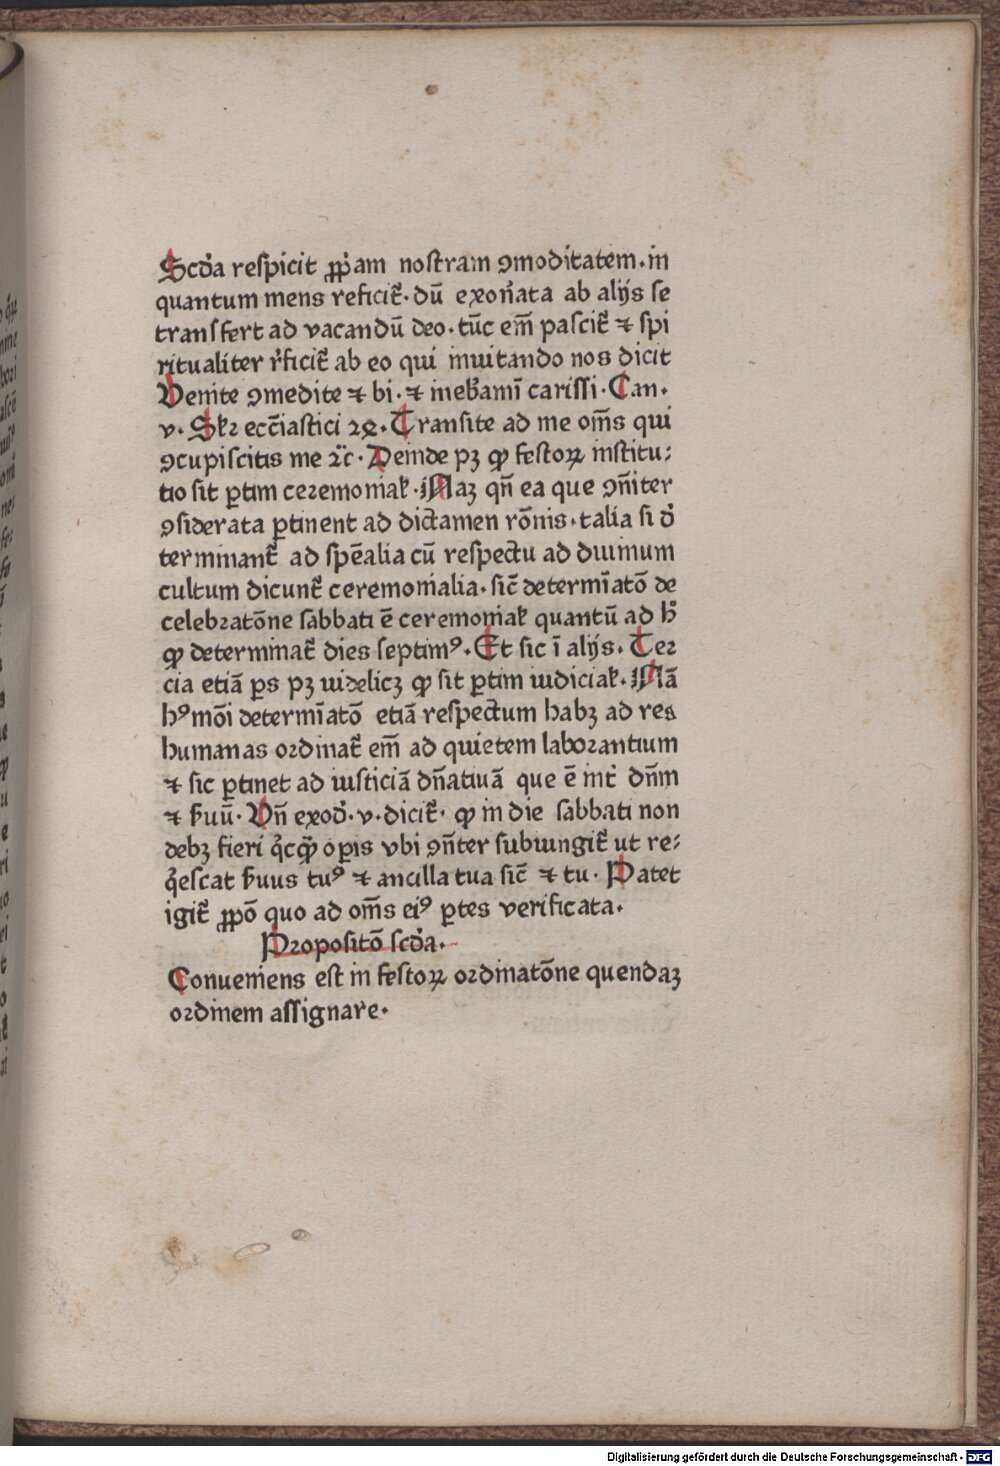 Scd̓a respicit ꝓṗam nostram ꝯmoditatem. in
quantum mens reficit᷑. dū exon̄ata ab alijs se
transfert ad vacandū deo. tūc em̄ pascit᷑ ⁊ spi
ritualiter r̓ficit᷑ ab eo qui inuitando nos dicit
Venite ꝯmedite ⁊ bi. ⁊ ineb̓amī carissi. Can.
v. Skꝛ ecc̄iastici 2ꝗ. Transite ad me om̄s qui
ꝯcupiscitis me ⁊c̈. Deinde pꝫ ꝙ festoꝝ institu⸗
tio sit ꝑtim ceꝛemoniaꝉ. Naꝫ qn̄ ea que ꝯn̄iter
ꝯsiderata ꝑtinent ad dictamen rōnis. talia si d̓
terminant᷑ ad spēalia cū respectu ad diuinum
cultum dicunt᷑ ceremonialia. sic̄ determīatō de
celebꝛatōne sabbati ē ceremoniaꝉ quantū ad h̓
ꝙ determinat᷑ dies septimꝰ. Et sic ī alijs. Teꝛ
cia etiā ꝑs pꝫ uidelicꝫ ꝙ sit ꝑtim iudiciaꝉ. Nā
hꝰmōi determīatō etiā respectum habꝫ ad res
humanas oꝛdinat᷑ em̄ ad quietem laboꝛantium
⁊ sic ꝑtinet ad iusticiā dn̄atiuā que ē int̓ dn̄m
⁊ ẜuū. Vn̄ exod̓. v. dicit᷑. ꝙ in die sabbati non
debꝫ fieri q̓cꝙ̄ oꝑis vbi ꝯn̄ter subiungit᷑ ut re⸗
q̓escat ẜuus tuꝰ ⁊ ancilla tua sic̄ ⁊ tu. Patet
igit᷑ ꝓpō quo ad om̄s eiꝰ ꝑtes verificata.
Pꝛopositō scd̓a.
Conueniens est in festoꝝ oꝛdinatōne quendaꝫ
oꝛdinem assignare.
Digitalisierung gefördert durch die Deutsche Forschungsgemeinschaft - DFG